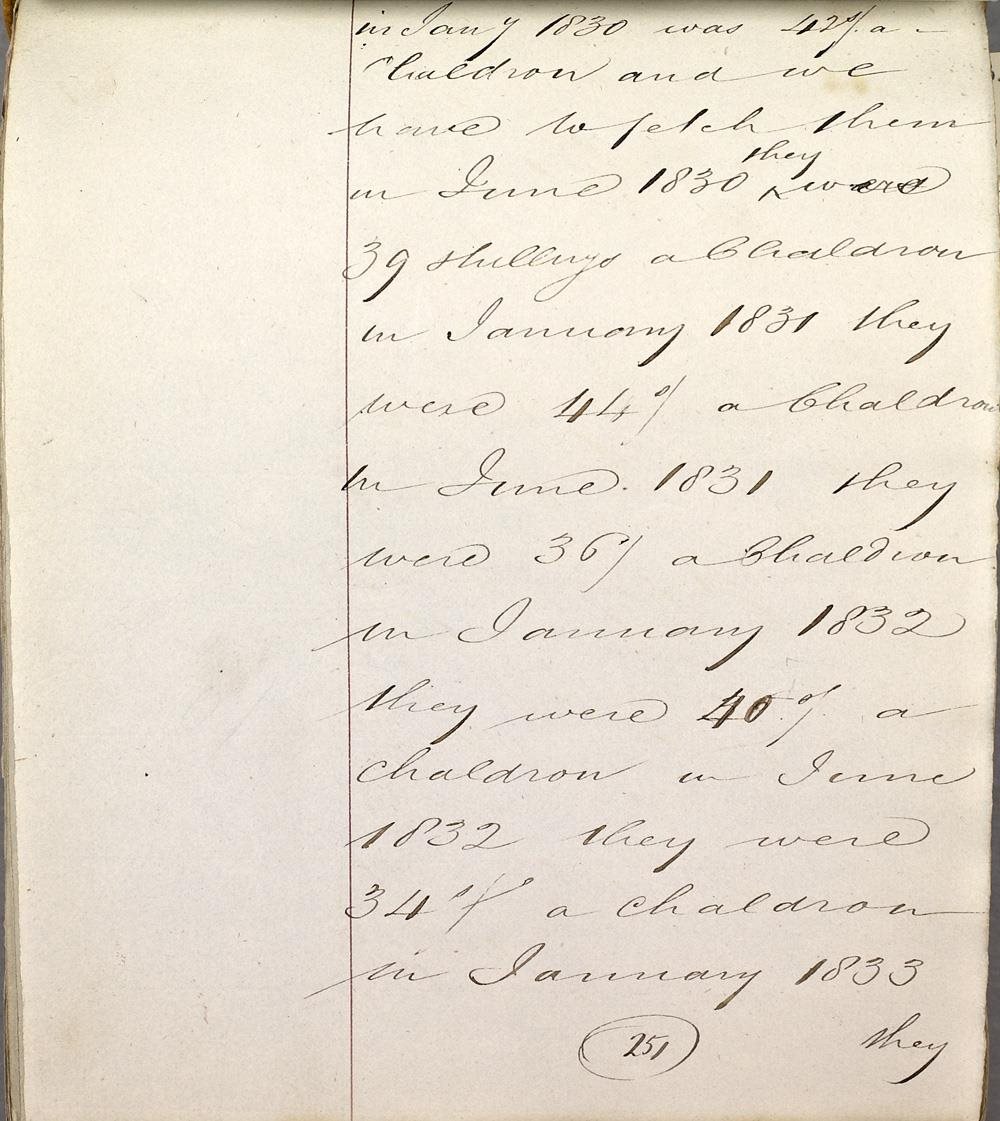 in Jany 1830 was 42s/. a -
Chaldron and we
have to fetch them
in June 1830 they were
39 shillings a Chaldron
in January 1831 they
were 44s/ a Chaldron
in June. 1831 they
were 36/ a Chaldron
in January 1832
they were 40s/. a
chaldron in June
1832 they were
34s/ a chaldron
in January 1833
251 they